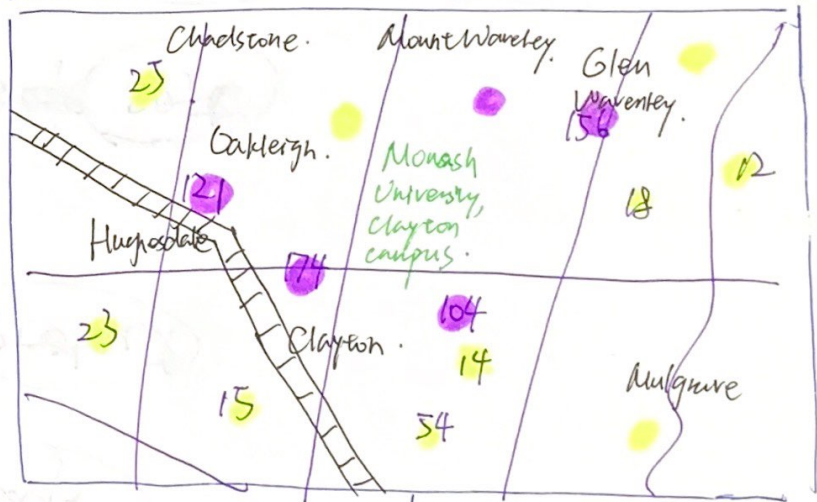 Chadstone.
Mount Waverley.
Glen
Waverley.
25
156
Oakleigh.
Monash
University,
Clayton
campus.
12
121
18
Hughesdale
174
104
23
Clayton.
14
Mulgrave
15
54